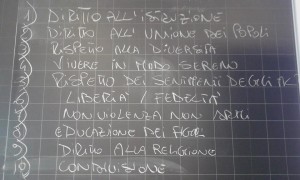 1) DIRITTO ALL'ISTRUZIONE
2) DIRITTO ALL'UNIONE DEI POPOLI
3) RISPETTO ALLA DIVERSITÀ
4) VIVERE IN MODO SERENO
5) RISPETTO DEI SENTIMENTI DEGLI
6) LIBERTÀ / FEDELTÀ
7) NON VIOLENZA NON ARMI
8) EDUCAZIONE DEI FIGLI
9) DIRITTO ALLA RELIGIONE
10) CONDIVISIONE